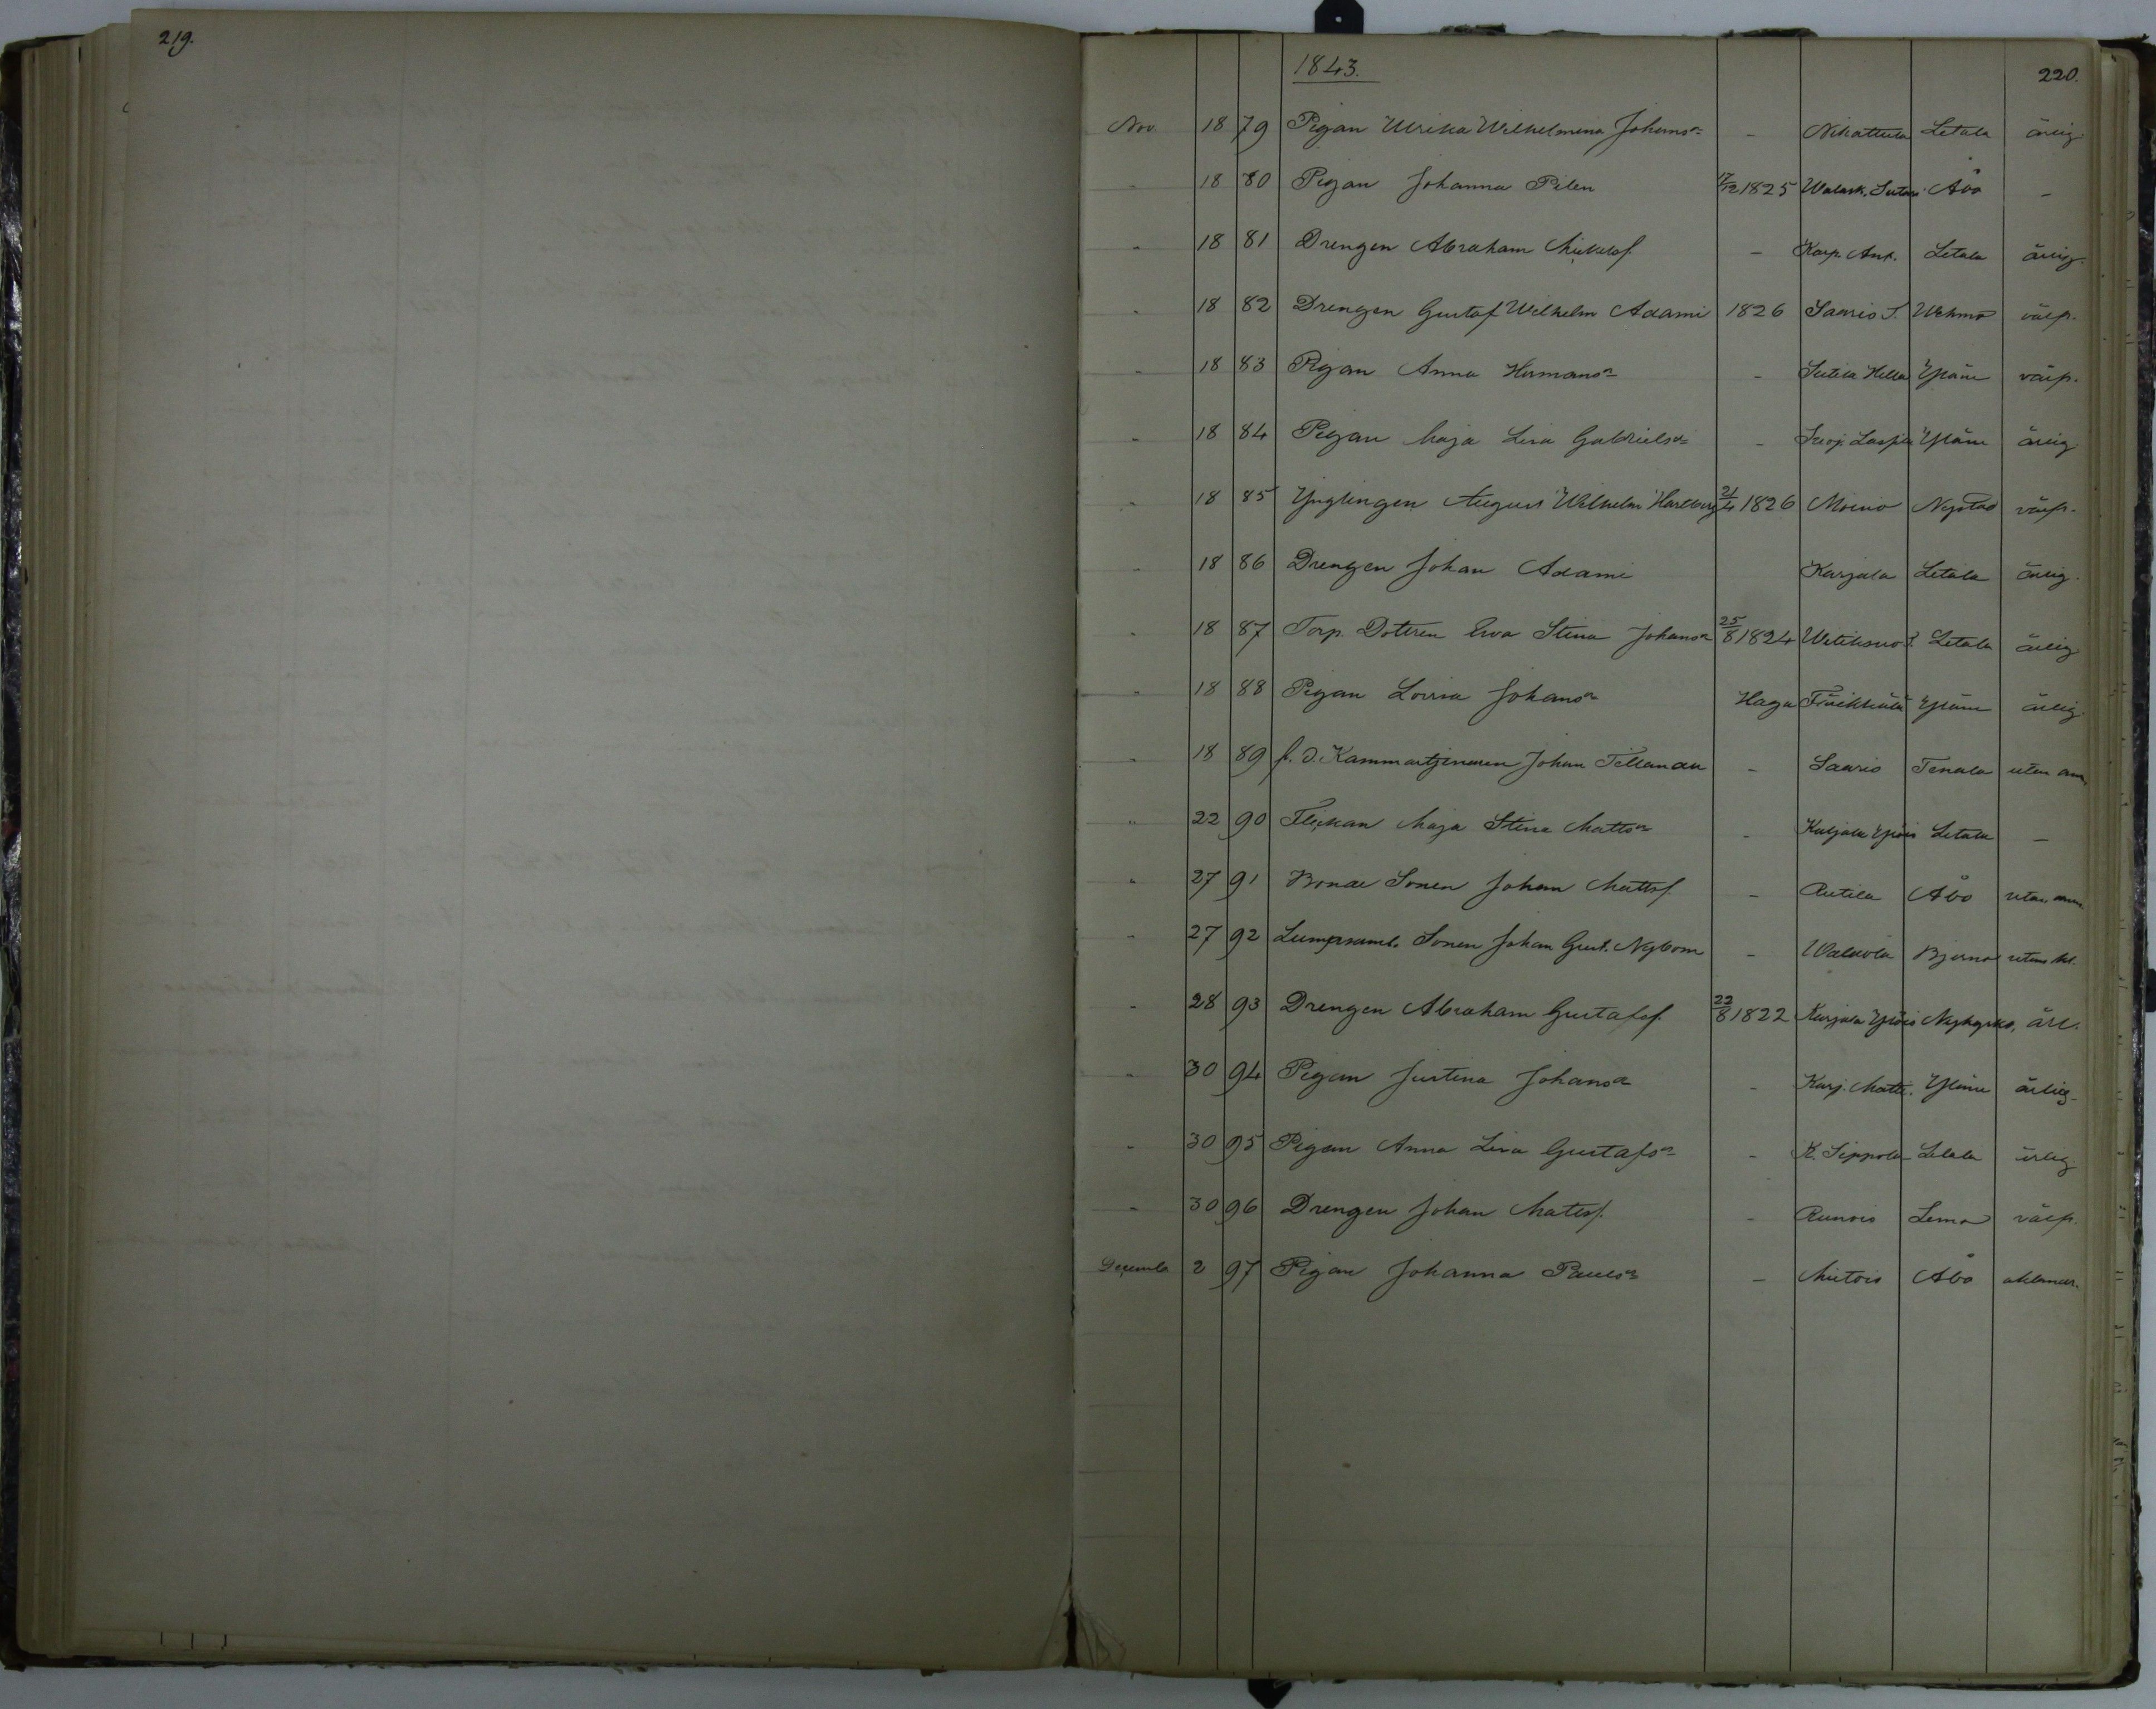 219.
1843.
220.
Nov. 18 79 Pigan Ulrika Wilhelmina Johansr - Nihattula Letala ärlig
" 18 80 Pigan Johanna Pilen 17/12 1825 Walask. Åbo -
" 18 81 Drengen Abraham Mickelsf. - Karp. Ant. Letala ärlig.
" 18 82 Drengen Gustaf Wilhelm Adami 1826 Saaris S. Wehmo välfr.
" 18 83 Pigan Anna Hermansr - Yläne välfr.
" 18 84 Pigan Maja Lisa Gabrielsr - Yläne ärlig
" 18 85 Ynglingen August Wilhelm Harlberg 21/4 1826 Moinio Nystad välfr.
" 18 86 Drengen Johan Adami Karjala Letala ärlig.
" 18 87 Torp. Dottren Eva Stina Johansr 25/8 1824 Letala ärlig
" 18 88 Pigan Lovisa Johansr Haga Yläne ärlig.
" 18 89 f. d. Kammartjenaren Johan Tillander - Saaris Tenala utan anm.
" 22 90 Flickan Maja Stina Mattsr - Kaljala Ypöis Letala -
" 27 91 Bonde Sonen Johan Mattsf. - Autila Åbo utan anm.
" 27 92 Lumpsaml. Sonen Johan Gust. Nybom - Walaola Bjerno utan
" 28 93 Drengen Abraham Gustafsf. 22/8 1822 Karjala Ypöis Nykyrko, ärl.
" 30 94 Pigan Justina Johansr - Karj. Matti. Yläne ärlig.
" 30 95 Pigan Anna Lisa Gustafsr - K. Seppola Letala ärlig
" 30 96 Drengen Johan Matsf. - Runois Lemo välfr.
Decemb. 2 97 Pigan Johanna Paulsr - Mietois Åbo oklander.